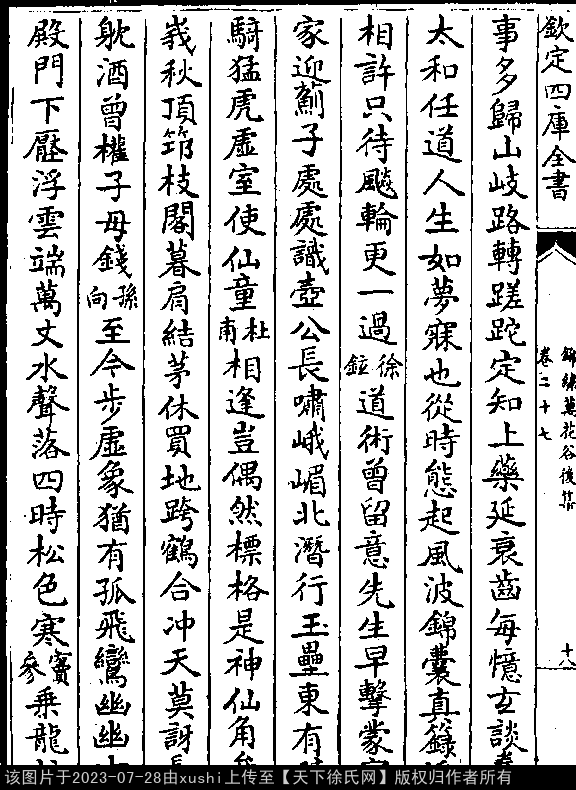 欽定四庫全書
錦繡萬花谷後集
卷二十七
十八
事多歸山岐路轉蹉跎定知上藥延衰齒每憶玄談
太和任道人生如夢寐也從時態起風波錦囊真籙
相許只待飈輪更一過徐鉉道術曾留意先生早擊蒙
家迎薊子處處識壺公長嘯峨嵋北潛行玉壘東有
騎猛虎虛室使仙童杜甫相逢豈偶然標格是神仙角
峩秋頂筇枝閣暮肩結茅休買地跨鶴合冲天莫訝
躭酒曾權子母錢孫向至今步虛象猶有孤飛鸞幽幽
殿門下壓浮雲端萬丈水聲落四時松色寒竇參乗龍
该图片于2023-07-28由xushi上传至【天下徐氏网】版权归作者所有